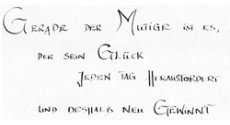 GERADE DER MUTIGE IST ES,
DER SEIN GLÜCK
JEDEN TAG HERAUSFORDERT
UND DESHALB NEU GEWINNT